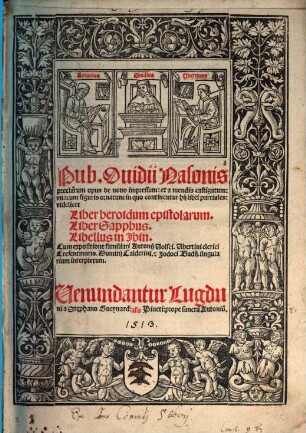 Ouidius
Pub. Ouidii Nasonis
preclarum opus de nouo impressum: et a mendis castigatum:
vnacum figuris ornatum: in quo continentur hij libri partiales:
videlicet
Liber heroidum epistolarum.
Liber Sapphus.
Libellus in Ibin.
Cum expositione familiari Antonij Volsci. Ubertini clerici
Crescentinatis. Domitij Calderini, & Jodoci Badij singula
rium interpretum.
Uenundantur Lugdu
ni a Stephano Gueynard: als Pineti: prope sanctū Antoniū.
1513.